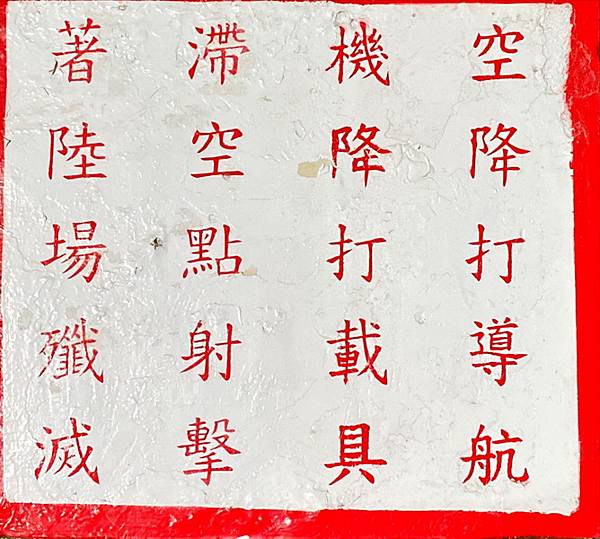 空降打導航
機降打載具
滯空點射擊
著陸場殲滅